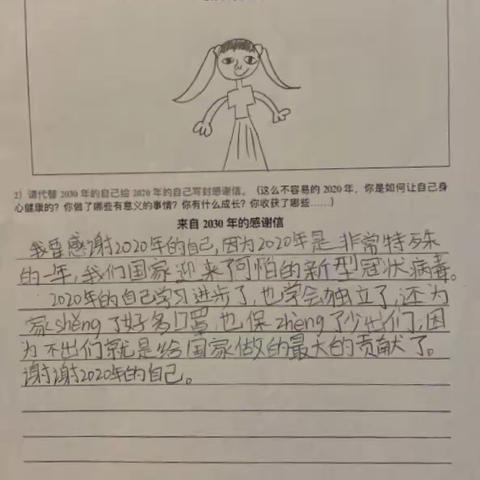 2）请代替 2030 年的自己给 2020 年的自己写封感谢信。（这么不容易的 2020 年，你是如何让自己身
心健康的？你做了哪些有意义的事情？你有什么成长？你收获了哪些……）
来自 2030 年的感谢信
我要感谢2020年的自己,因为2020年是非常特殊
的一年,我们国家迎来了可怕的新型冠状病毒。
2020年的自己学习进步了,也学会独立了,还为
家shěng了好多口罩,也保zhèng了少出们,因
为不出们就是给国家做的最大的贡献了。
谢谢2020年的自己。